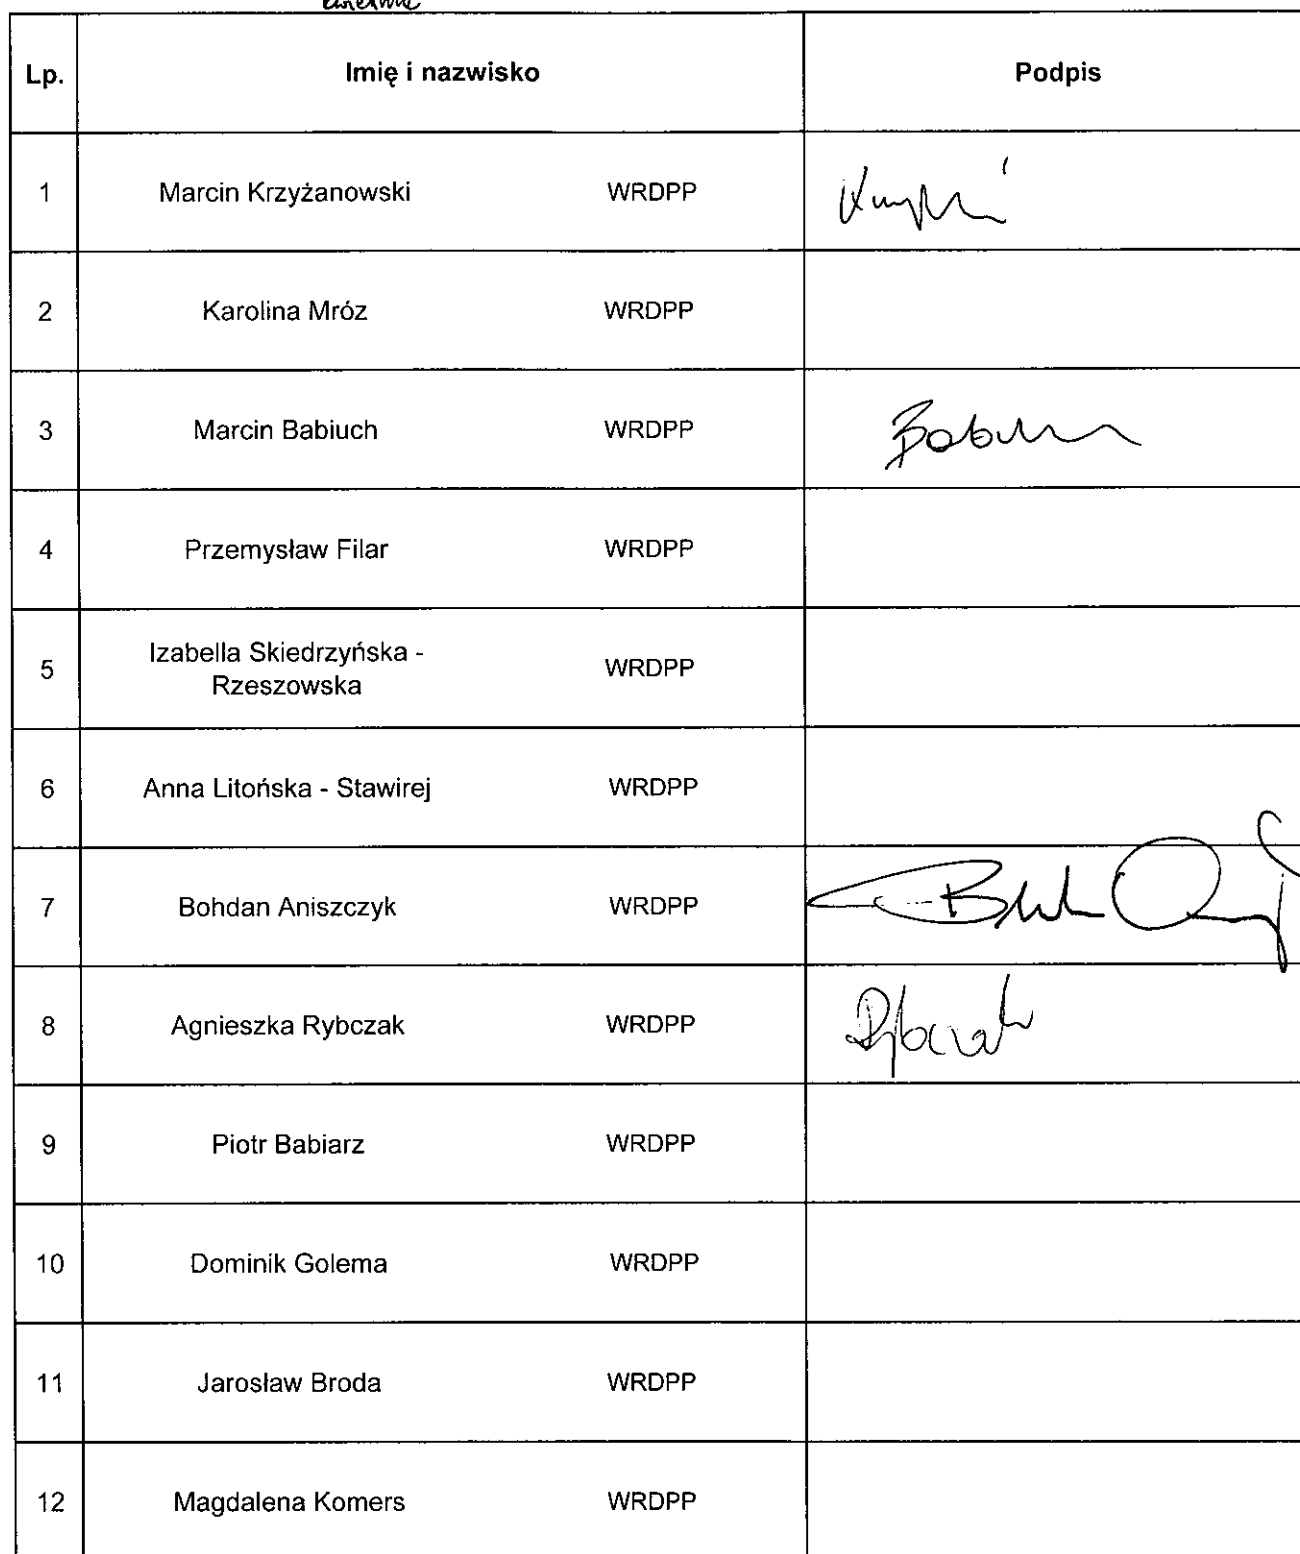 Lp. Imię i nazwisko Podpis
1 Marcin Krzyżanowski WRDPP
2 Karolina Mróz WRDPP
3 Marcin Babiuch WRDPP
4 Przemysław Filar WRDPP
5 Izabella Skiedrzyńska -
Rzeszowska WRDPP
6 Anna Litońska - Stawirej WRDPP
7 Bohdan Aniszczyk WRDPP
8 Agnieszka Rybczak WRDPP Rybczak
9 Piotr Babiarz WRDPP
10 Dominik Golema WRDPP
11 Jarosław Broda WRDPP
12 Magdalena Komers WRDPP